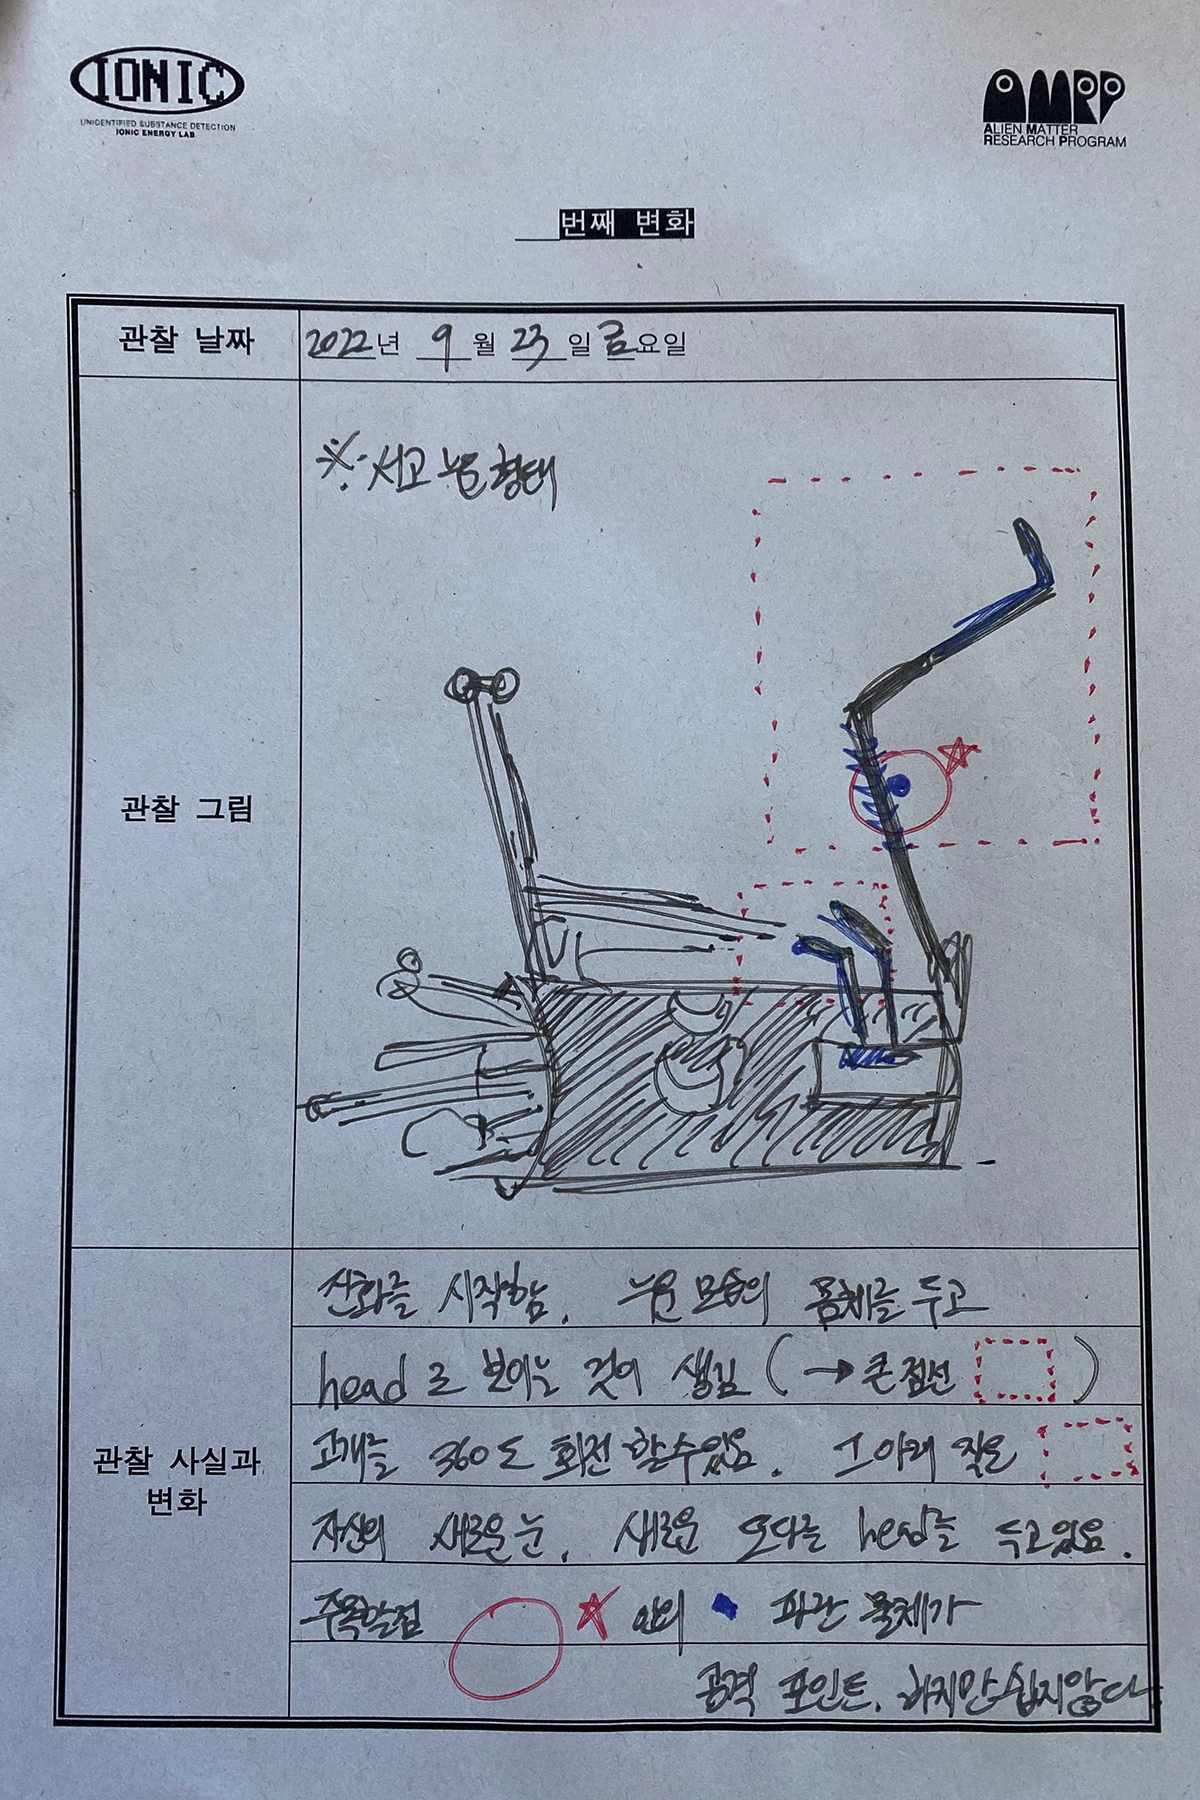 IONIC
UNIDENTIFIED SUBSTANCE DETECTION
IONIC ENERGY LAB
AMRP
ALIEN MATTER
RESEARCH PROGRAM
번째 변화
관찰 날짜
2022년 9월 23일 금요일
※. 서고 누운 형태
관찰 그림
관찰 사실과
변화
진화를 시작함. 누운 모습의 몸체를 두고
head로 보이는 것이 생김 (→ 큰 점선 )
고개를 360도 회전 할 수 있음. 그 아래 작은
자신의 새로운 눈. 새로운 또다른 head를 두고있음.
주목할점 안의 파란 물체가
공격 포인트. 하지만 쉽지않다.